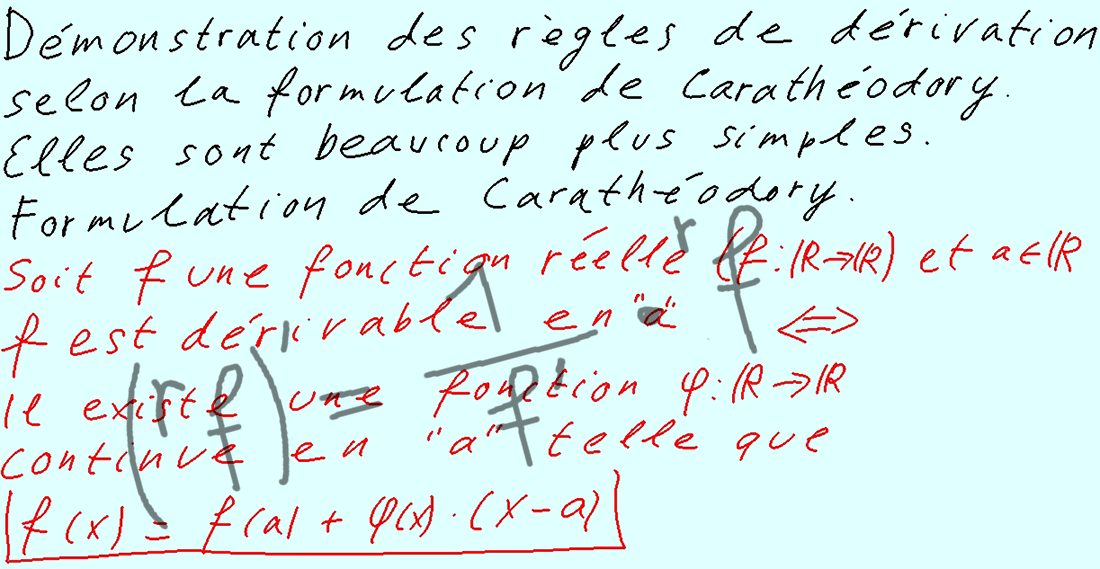 Démonstration des règles de dérivation
selon la formulation de Carathéodory.
Elles sont beaucoup plus simples.
Formulation de Carathéodory.
Soit f une fonction réelle (f:ℝ→ℝ) et a∈ℝ
f est dérivable en "a" ⇔
Il existe une fonction φ:ℝ→ℝ
continue en "a" telle que
f(x) = f(a) + φ(x)·(x-a)
(ʳf)' = 1/f' · ʳf